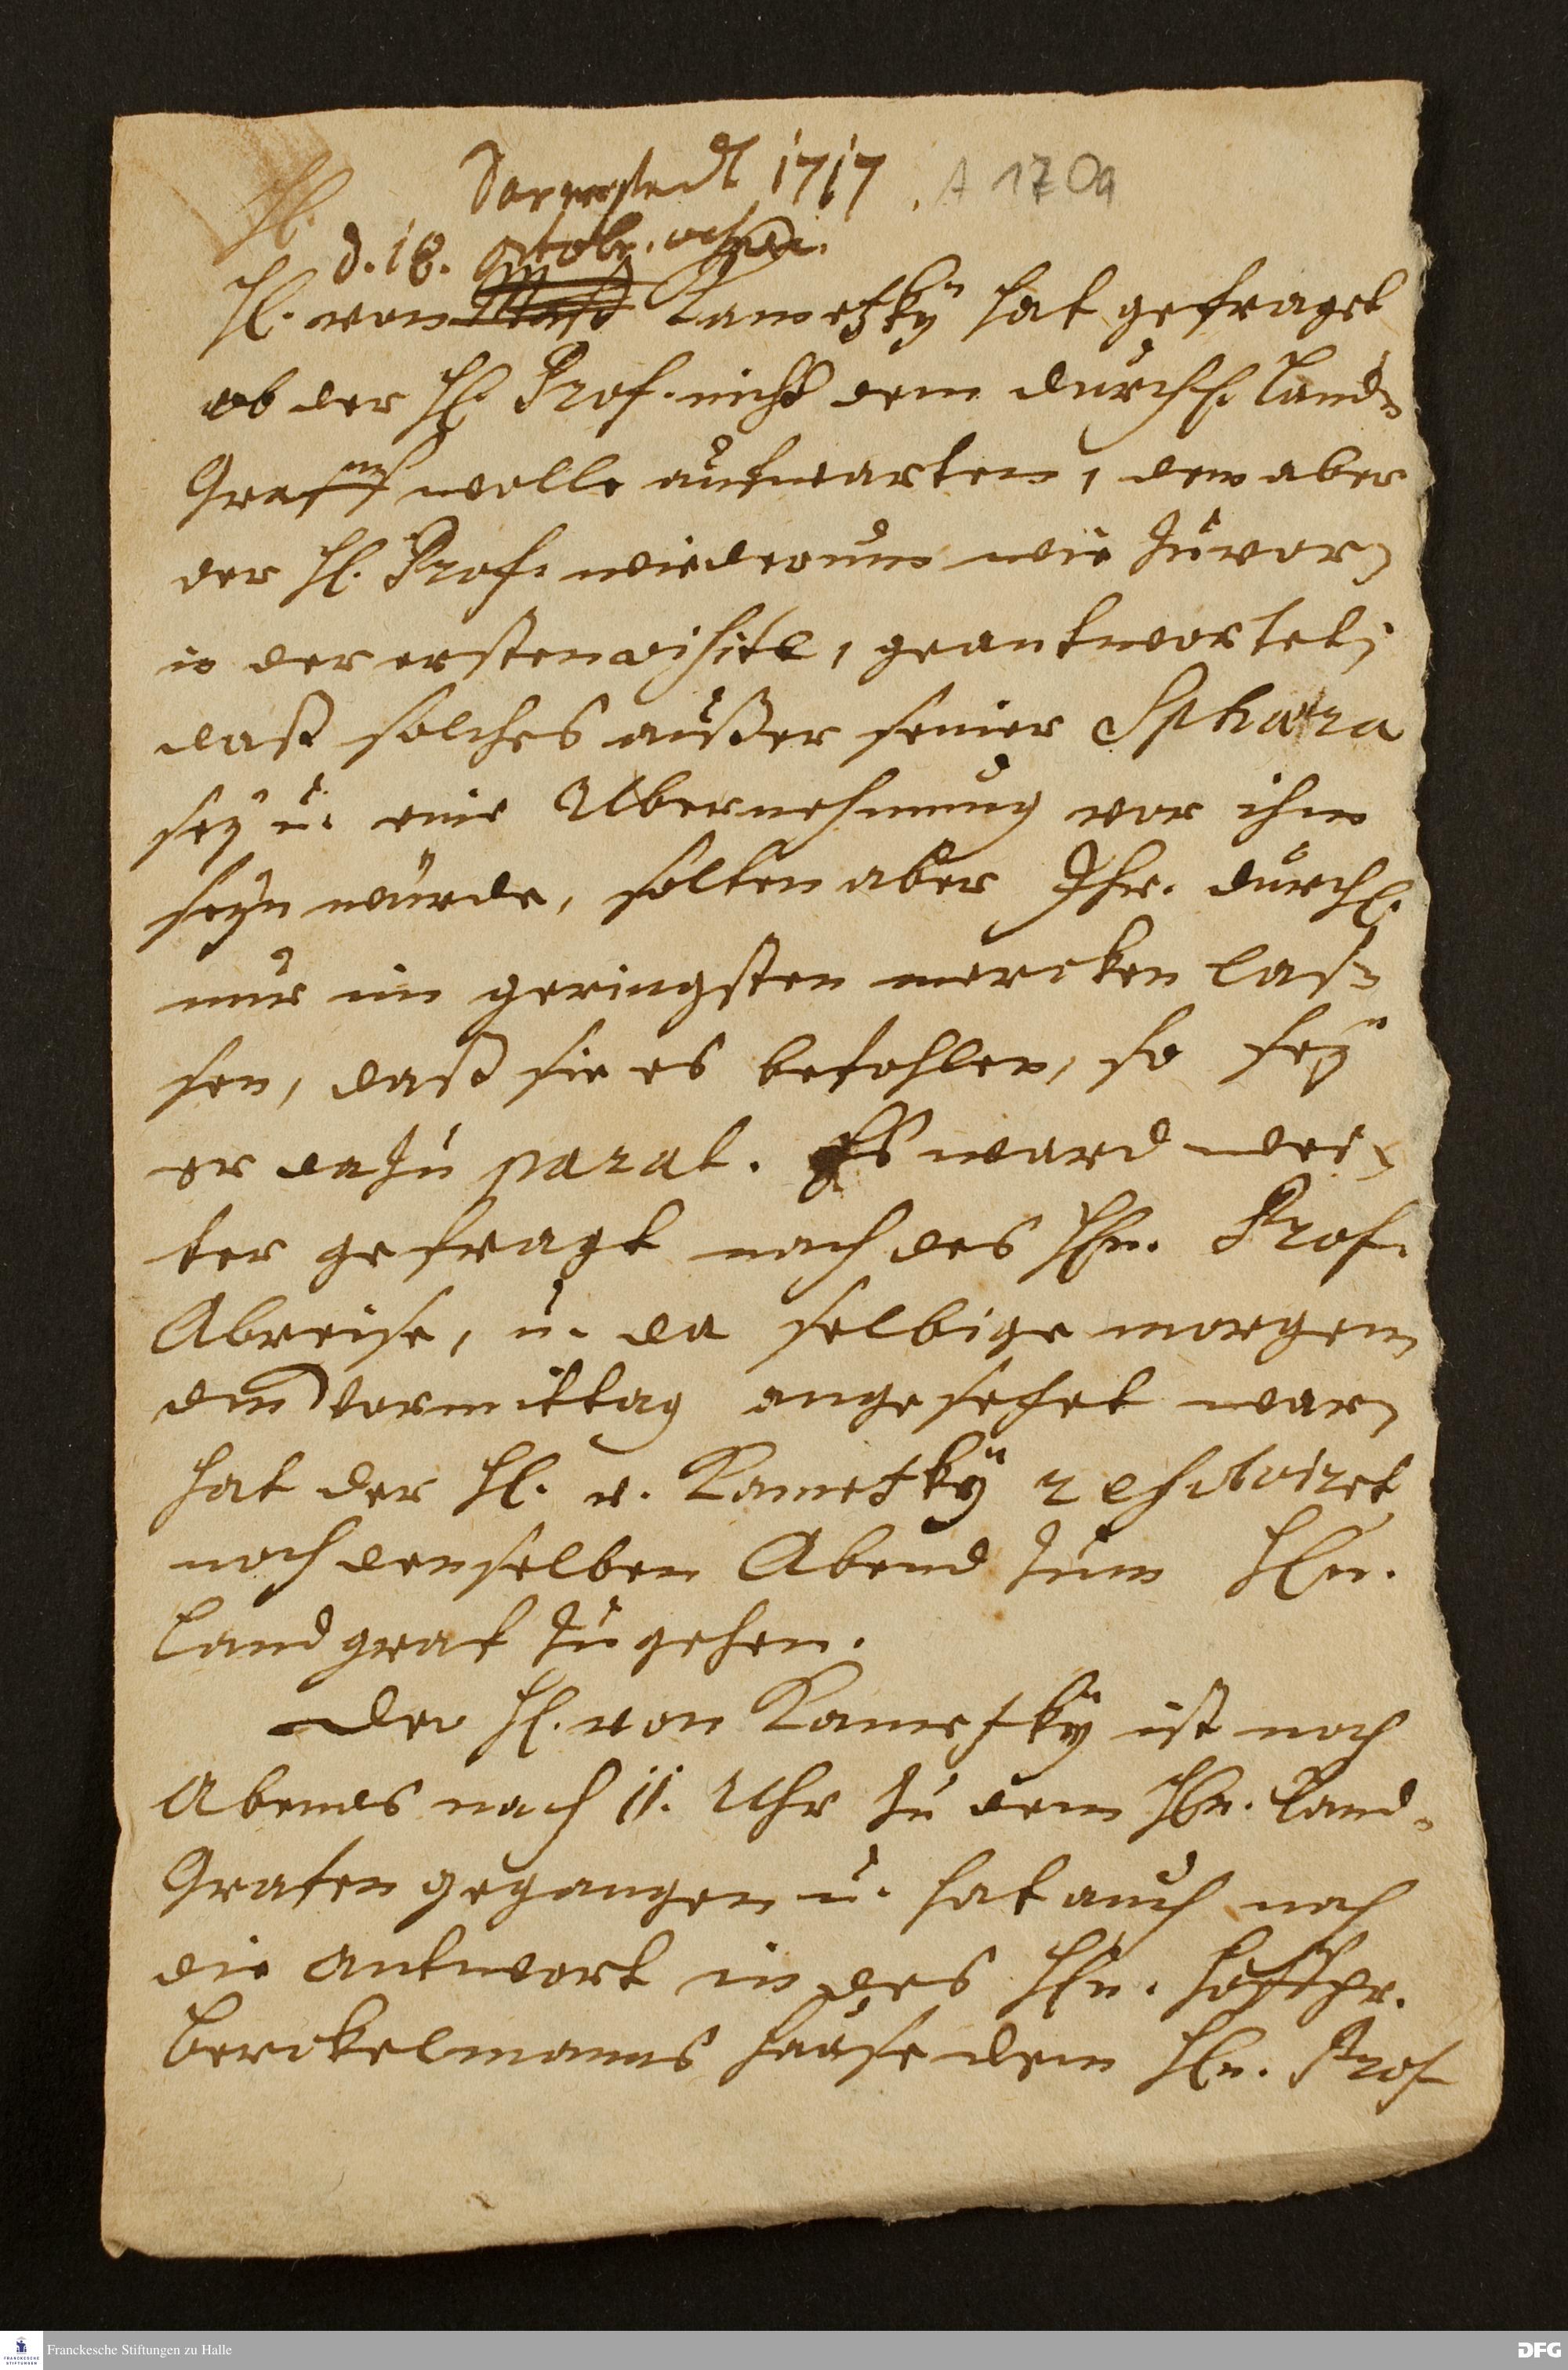 Darmstedt 1717 A 170a
H.
d. 18. octobr.
H. von Kametzky hat gefraget
ob der H. Prof. nicht dem durchl. Land-
Graff wolle aufwarten, dem aber
der H. Prof. wiederum wie zuvor
in der ersten visite, geantwortet,
daß solches außer seiner Sphaera
sey u. eine Ubernehmung vor ihm
seyn würde, solten aber Ihr. durchl.
nur im geringsten mercken las-
sen, daß sie es befohlen, so sey
er dazu parat. Es ward wei-
ter gefragt nach des Hn. Prof.
Abreise, u. da selbige morgen
den vormittag angesetzet war
hat der H. v. Kametzky resolviret
noch denselben Abend zum Hn.
Landgraf zu gehen.
Der H. von Kametzky ist noch
Abends nach 11. Uhr zu dem Hn. Land-
Grafen gegangen u. hat auch noch
die antwort in des Hn. Hoffpr.
Berckelmanns Hause dem Hn. Prof
Franckesche Stiftungen zu Halle
DFG